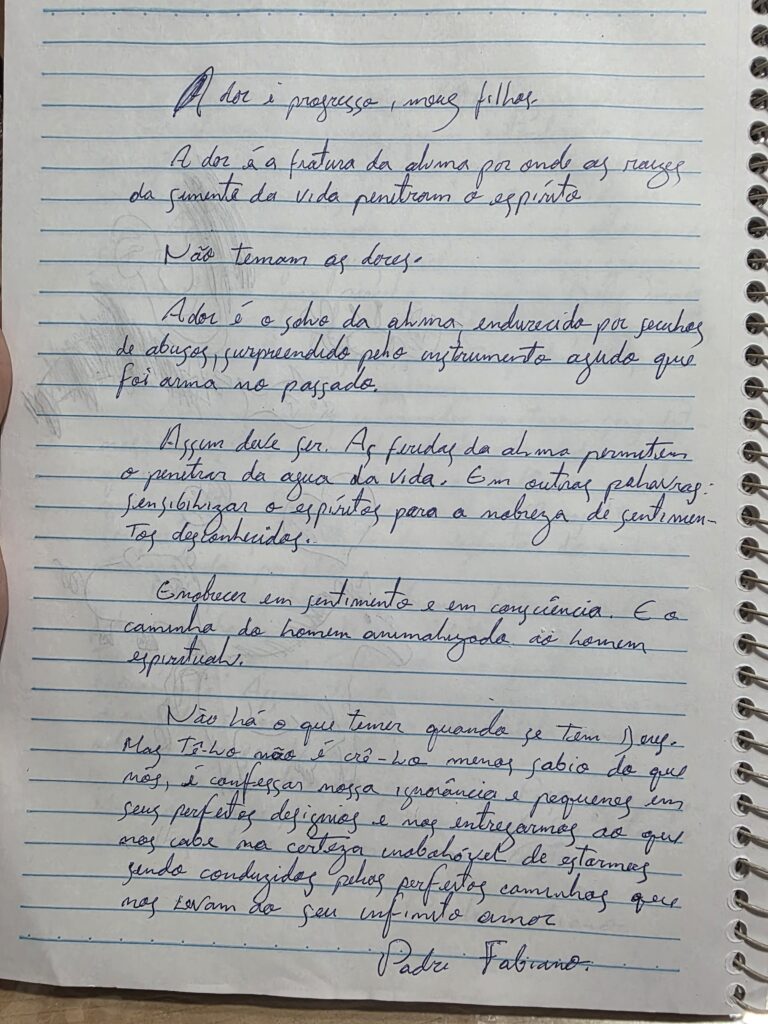 A dor é progresso, meus filhos.
A dor é a fratura da alma por onde as raizes
da semente da vida penetram o espírito
Não temam as dores.
A dor é o solvo da alma, endurecido por seculos
de abusos, surpreendido pelo instrumento agudo que
foi arma no passado.
Assim deve ser. As feridas da alma permitem
o penetrar da agua da vida. Em outras palavras:
sensibilizar o espíritos para a nobreza de sentimen-
tos desconhecidos.
Enobrecer em sentimento e em consciência. E o
caminho do homem animalizado ao homem
espiritual.
Não há o que temer quando se tem Deus.
Mas Tê-Lo não é crê-Lo menos sabio do que
nós, é confessar nossa ignorância e pequenos em
seus perfeitos designios e nos entregarmos ao que
nos cabe na certeza inabalável de estarmos
sendo conduzidos pelos perfeitos caminhos que
nos levam ao seu infinito amor
Padre Fabiano.